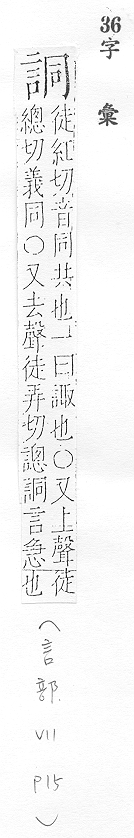 36
字彙
詷徒紅切音同共也一曰諏也○又上聲徒
總切義同○又去聲徒弄切謥詷言急也
(言部 VII P15)